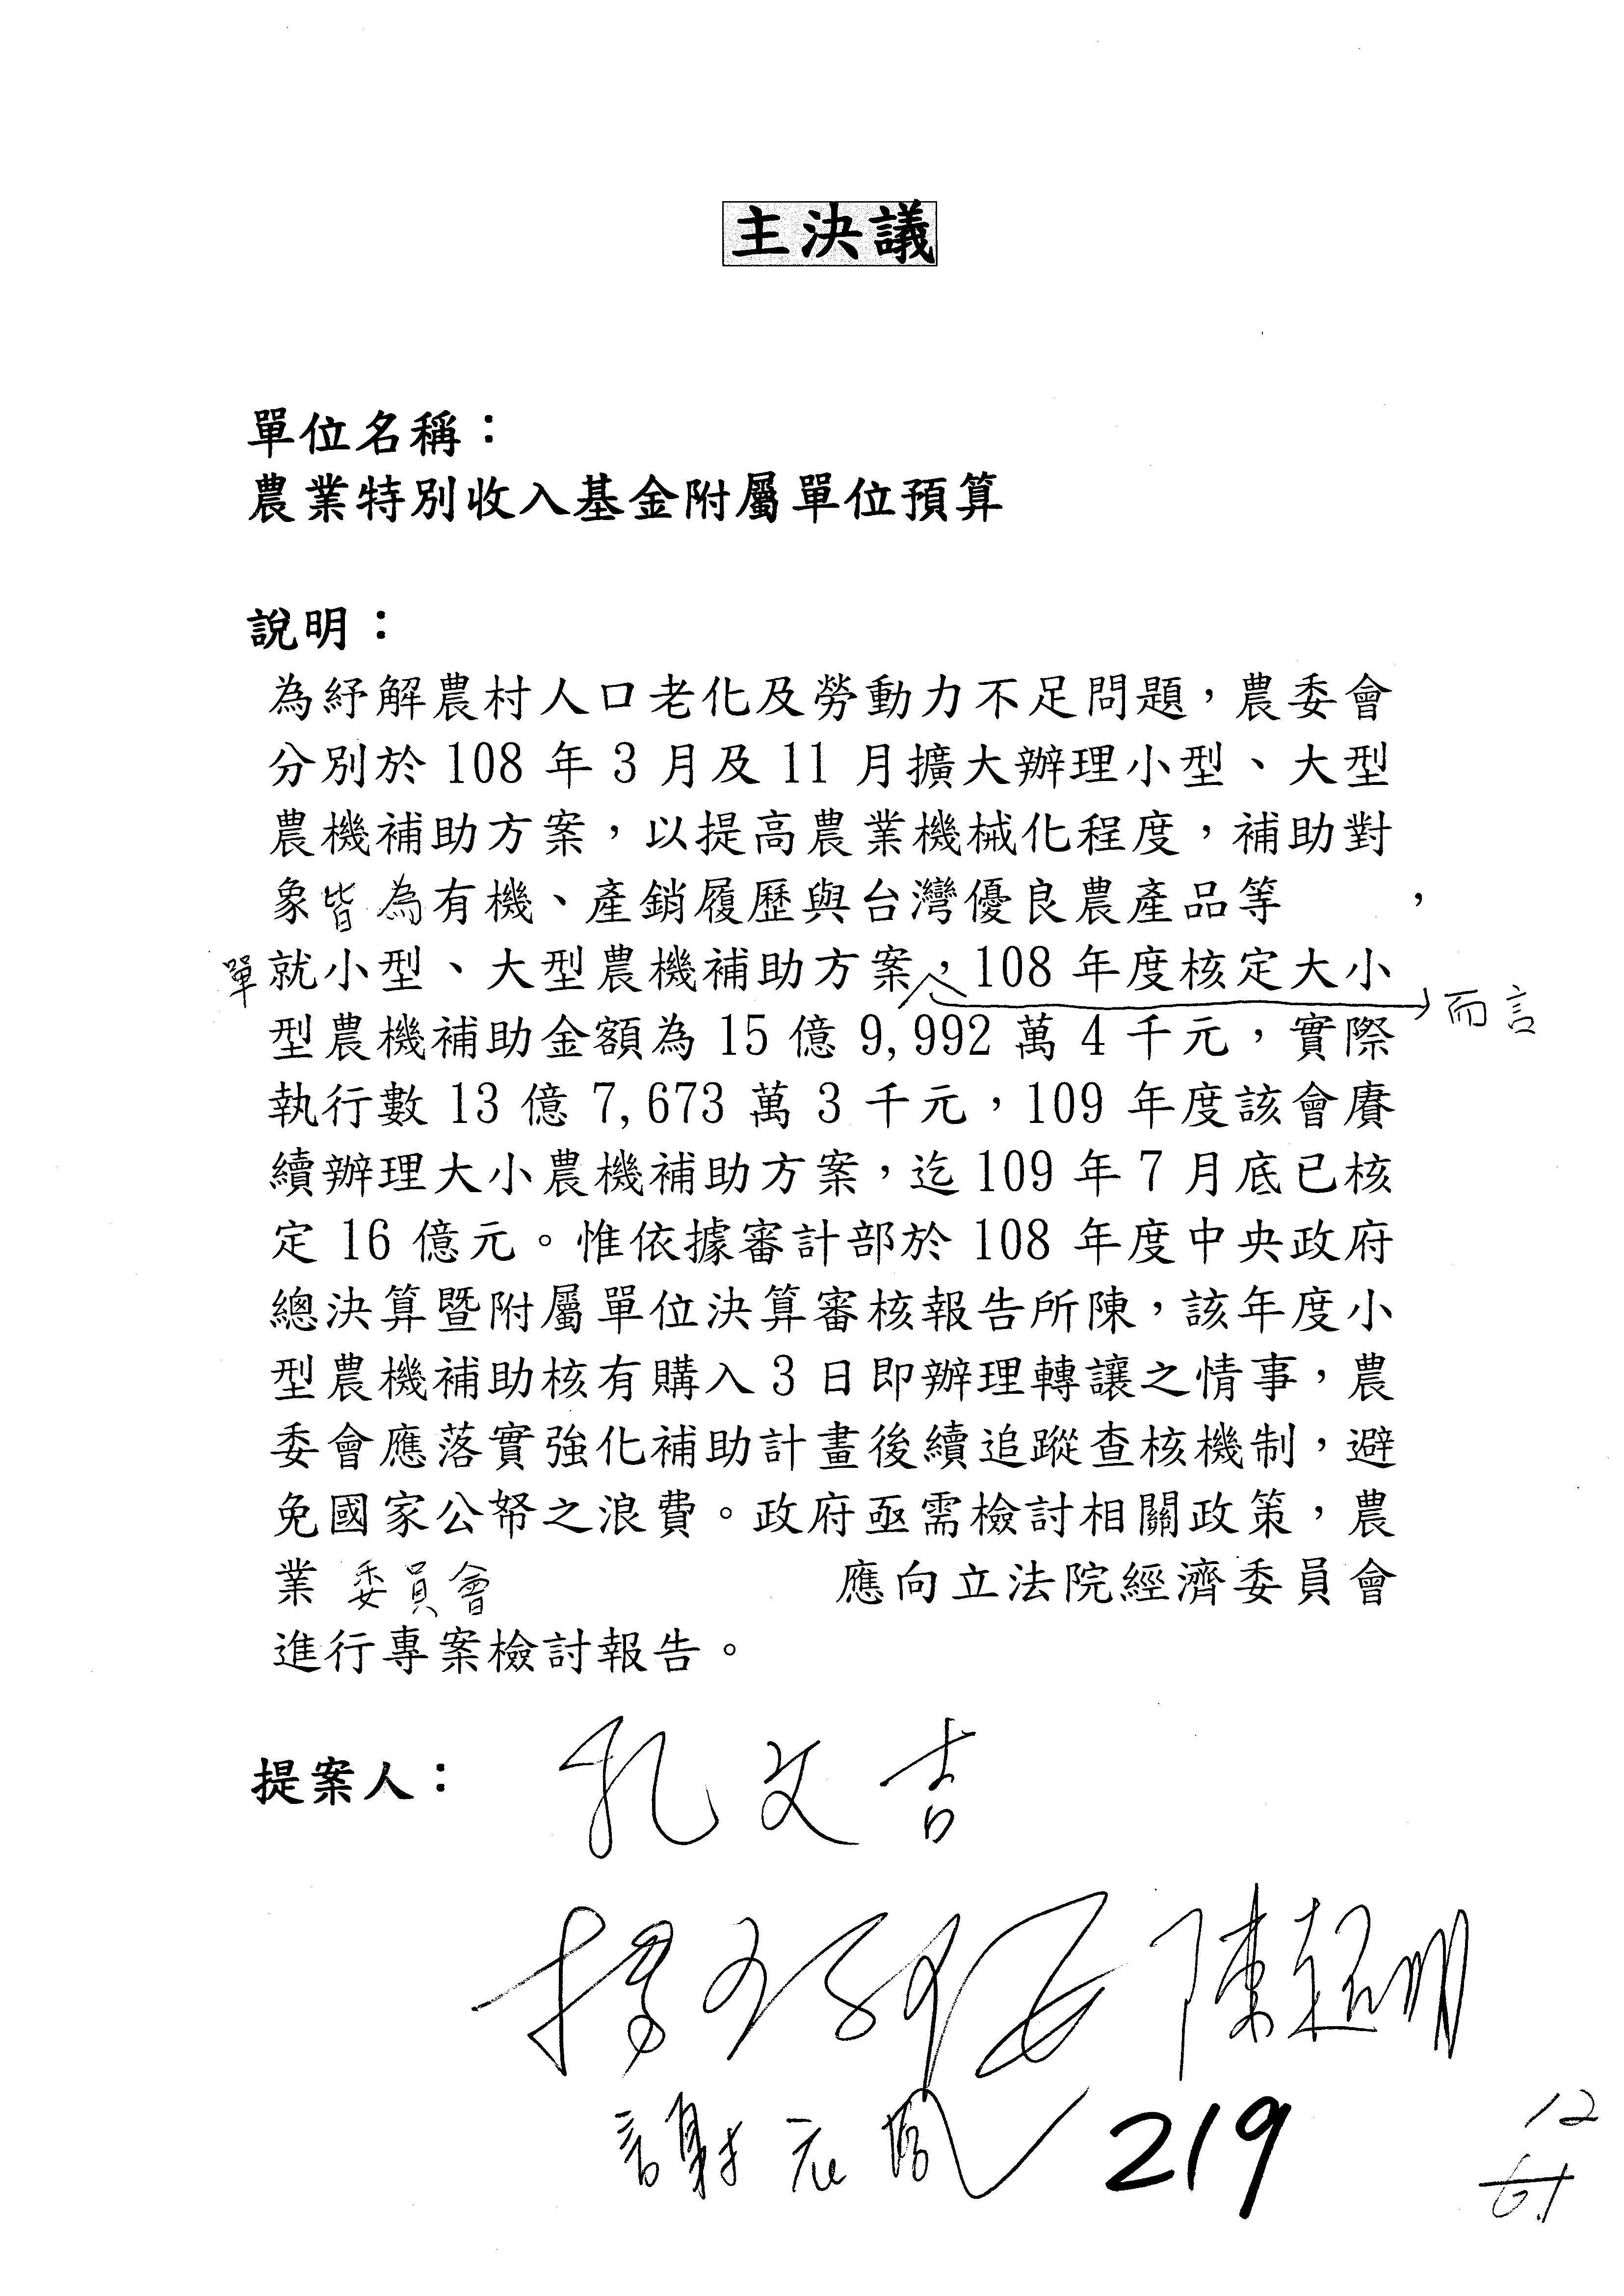 主決議
單位名稱：
農業特別收入基金附屬單位預算
說明：
為紓解農村人口老化及勞動力不足問題，農委會
分別於 108 年 3 月及 11 月擴大辦理小型、大型
農機補助方案，以提高農業機械化程度，補助對
象皆為有機、產銷履歷與台灣優良農產品等，
單就小型、大型農機補助方案，108 年度核定大小
而言
型農機補助金額為 15 億 9,992 萬 4 千元，實際
執行數 13 億 7,673 萬 3 千元，109 年度該會賡
續辦理大小農機補助方案，迄 109 年 7 月底已核
定 16 億元。惟依據審計部於 108 年度中央政府
總決算暨附屬單位決算審核報告所陳，該年度小
型農機補助核有購入 3 日即辦理轉讓之情事，農
委會應落實強化補助計畫後續追蹤查核機制，避
免國家公帑之浪費。政府亟需檢討相關政策，農
業委員會 應向立法院經濟委員會
進行專案檢討報告。
提案人：孔文吉
陳超明
219
12